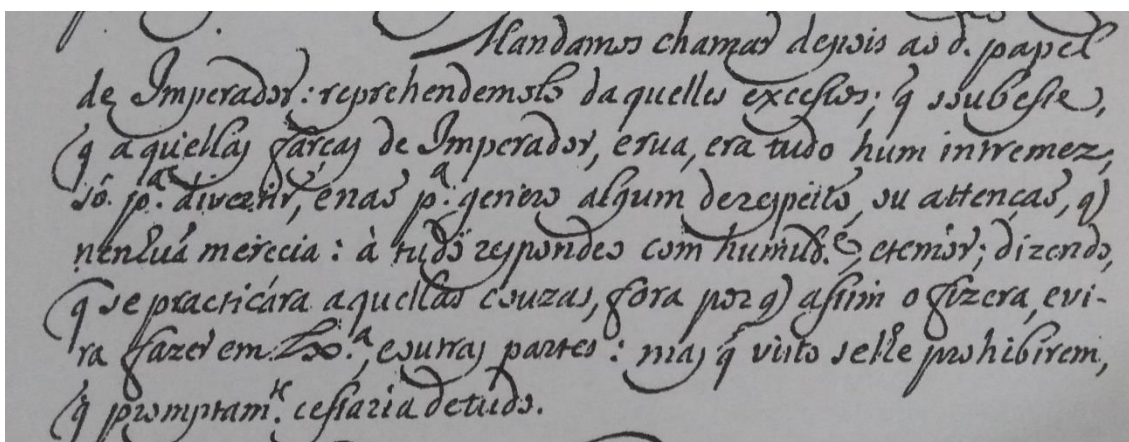 Mandamos chamar depois ao d. papel
de Imperador: reprehendemolo daquelles excessos; q̃ soubesse,
q̃ aquellas farças de Imperador, e rua, era tudo hum intremez,
só p.ª divertir, e naõ p.ª genero algum de respeito, ou attençaõ, q̃
nenhuã merecia: à tudo respondeo com humild.ᵉ, e temor; dizendo,
q̃ se practicára aquellas couzas, fora porq̃ assim o fizera, e vi-
ra fazer em Lx.ª, e outras partes: mas q̃ visto selhe prohibirem,
q̃ promptam.ᵗᵉ cessaria de tudo.